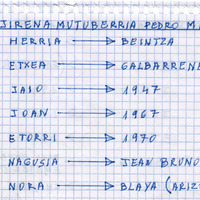 JIRENA MUTUBERRIA PEDRO M
HERRIA → BEINTZA
ETXEA → GALBARRENE
JAIO → 1947
JOAN → 1967
ETORRI → 1970
NAGUSIA → JEAN BRUNO
NORA → BLAYA (ARIZ